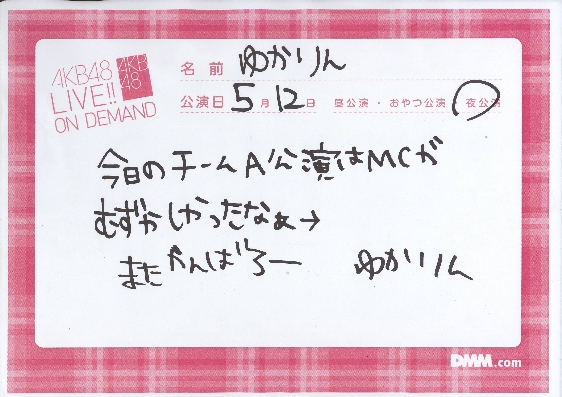 AKB48
LIVE!!
ON DEMAND
AKB
48
名前 ゆかりん
公演日 5月12日 昼公演・おやつ公演・夜公演
今日のチームA公演はMCが
むずかしかったなぁ→
またがんばろー ゆかりん
DMM.com